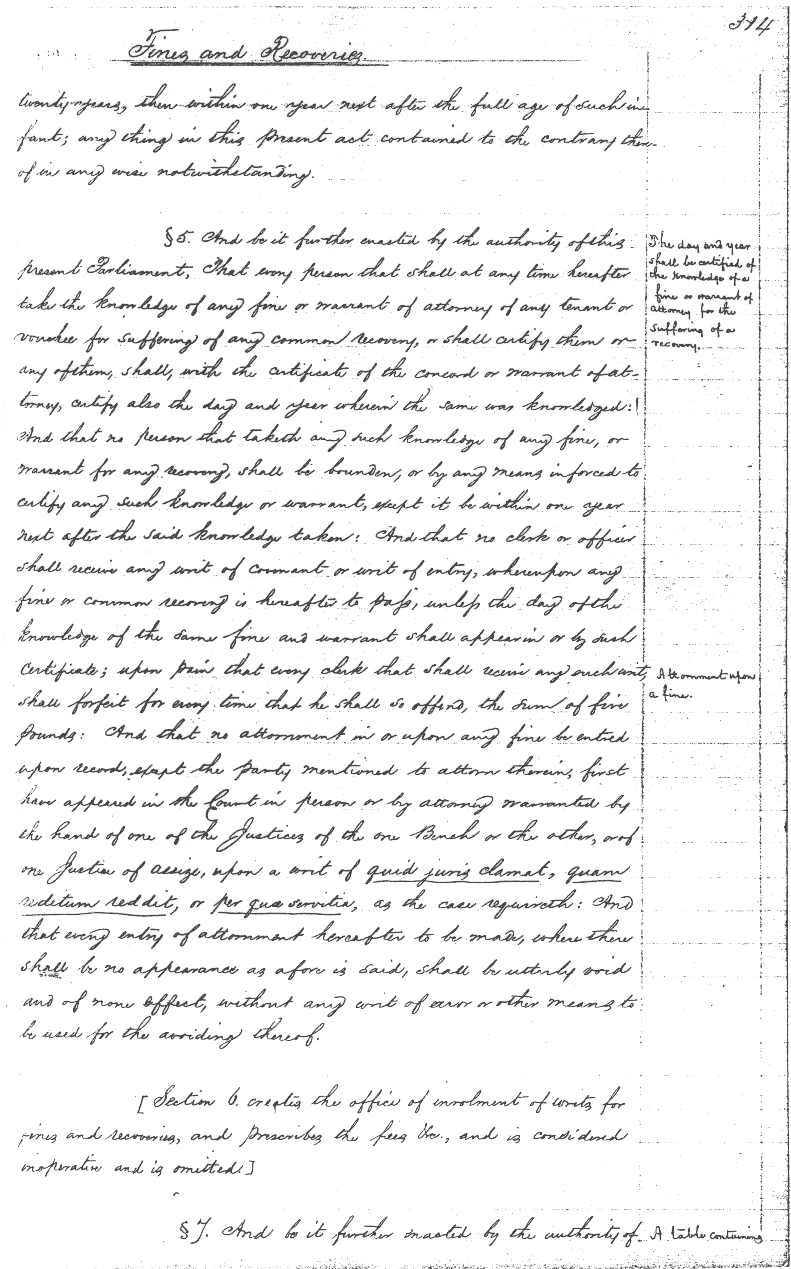 314
Fines and Recoveries.
twenty years, then within one year next after the full age of such in-
fant; any thing in this present act contained to the contrary there-
of in any wise notwithstanding.
§5. And be it further enacted by the authority of this
present Parliament, That every person that shall at any time hereafter
take the knowledge of any fine or warrant of attorney of any tenant or
vouchee for suffering of any common recovery, or shall certify them or
any of them, shall, with the certificate of the concord or warrant of at-
torney, certify also the day and year wherein the same was knowledged:
And that no person that taketh any such knowledge of any fine, or
warrant for any recovery, shall be bounden, or by any means inforced to
certify any such knowledge or warrant, except it be within one year
next after the said knowledge taken: And that no clerk or officer
shall receive any writ of covenant or writ of entry, whereupon any
fine or common recovery is hereafter to pass, unless the day of the
knowledge of the same fine and warrant shall appear in or by such
certificate; upon pain that every clerk that shall receive any such writ,
shall forfeit for every time that he shall so offend, the sum of five
pounds: And that no attornment in or upon any fine be entred
upon record, except the party mentioned to attorn therein, first
have appeared in the Court in person or by attorney warranted by
the hand of one of the Justices of the one Bench or the other, or of
one Justice of assize, upon a writ of quid juris clamat, quam
reditum reddit, or per quæ servitia, as the case requireth: And
that every entry of attornment hereafter to be made, where there
shall be no appearance as afore is said, shall be utterly void
and of none effect, without any writ of error or other means to
be used for the avoiding thereof.
The day and year
shall be certified of
the knowledge of a
fine or warrant of
attorney for the
suffering of a
recovery.
Attornment upon
a fine.
[Section 6. creates the office of inrolment of writs for
fines and recoveries, and prescribes the fees &c., and is considered
inoperative and is omitted.]
§7. And be it further enacted by the authority of
A table containing